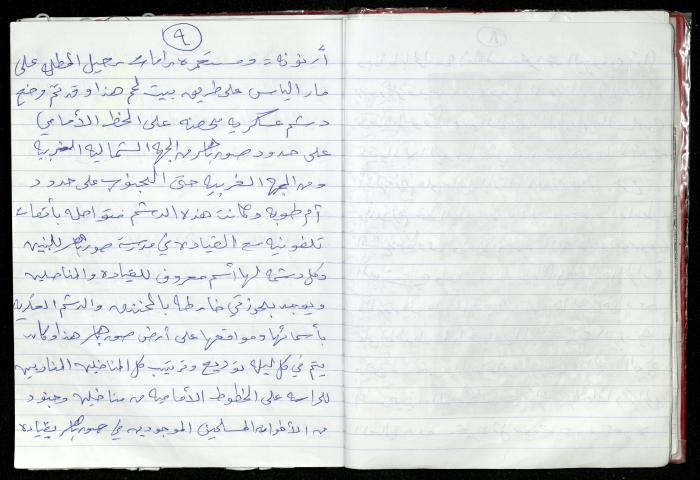 ٩
أرنونه، ومستعمرة رامات رحيل المطله على
مار الياس على طريق بيت لحم هذا وقد تم وضع
دشم عسكريه محصنه على الخط الأمامي
على حدود صور باهر من الجهه الشماليه الغربيه
ومن الجهه الغربيه حتى الجنوب على حدود
أم طوبه وكانت هذه الدشم متواصله باتصالات
تلفونيه مع القياده في مدرسة صور باهر للبنين
وكل دشمه لها أسم معروف للقياده والمناضلين
ويوجد بحوزتي خارطه بالخنادق والدشم العسكريه
بأسمائها ومواقعها على أرض صور باهر هذا وكان
يتم في كل ليله توزيع وترتيب كل المناضلين المناوبين
للحراسه على الخطوط الأماميه من مناضلين وجنود
من الأخوان المسلمين الموجودين في صور باهر بقيادة